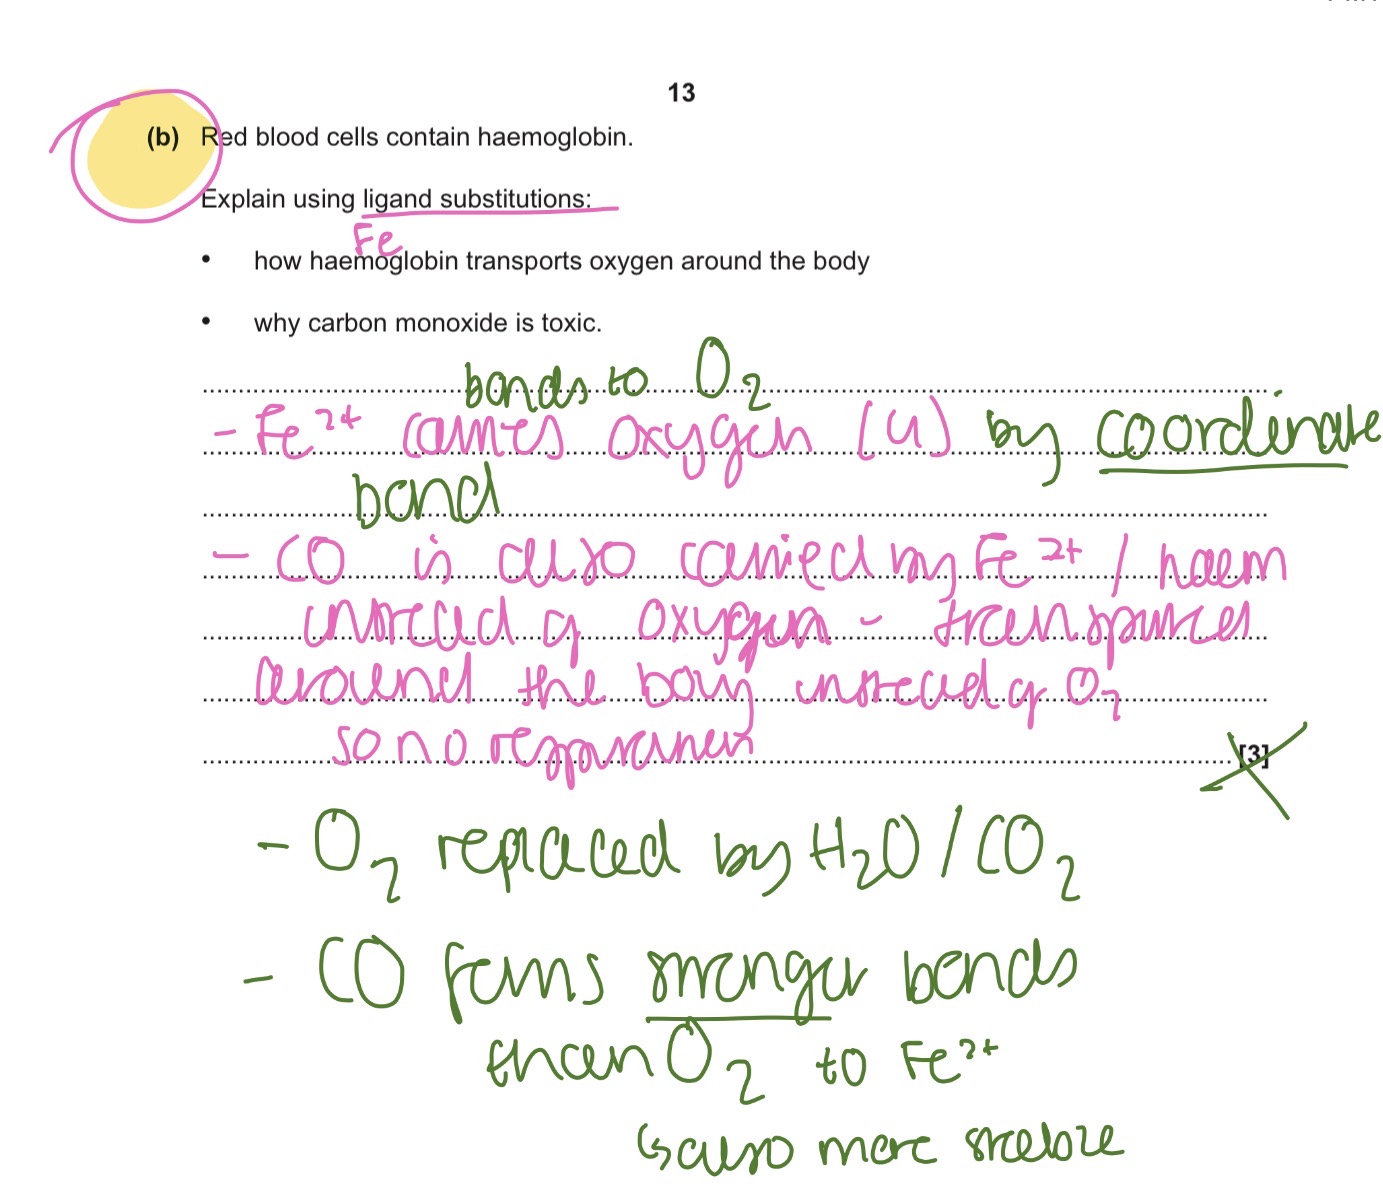 13
(b) Red blood cells contain haemoglobin.
Explain using ligand substitutions:
Fe
• how haemoglobin transports oxygen around the body
• why carbon monoxide is toxic.
bonds to O2
- Fe2+ carries oxygen (4) by coordinate
bond
- CO is also carried by Fe2+ / haem
instead of oxygen - transported
around the body instead of O2
so no respiration
[3]
- O2 replaced by H2O / CO2
- CO forms stronger bonds
than O2 to Fe2+
↳ also more stable